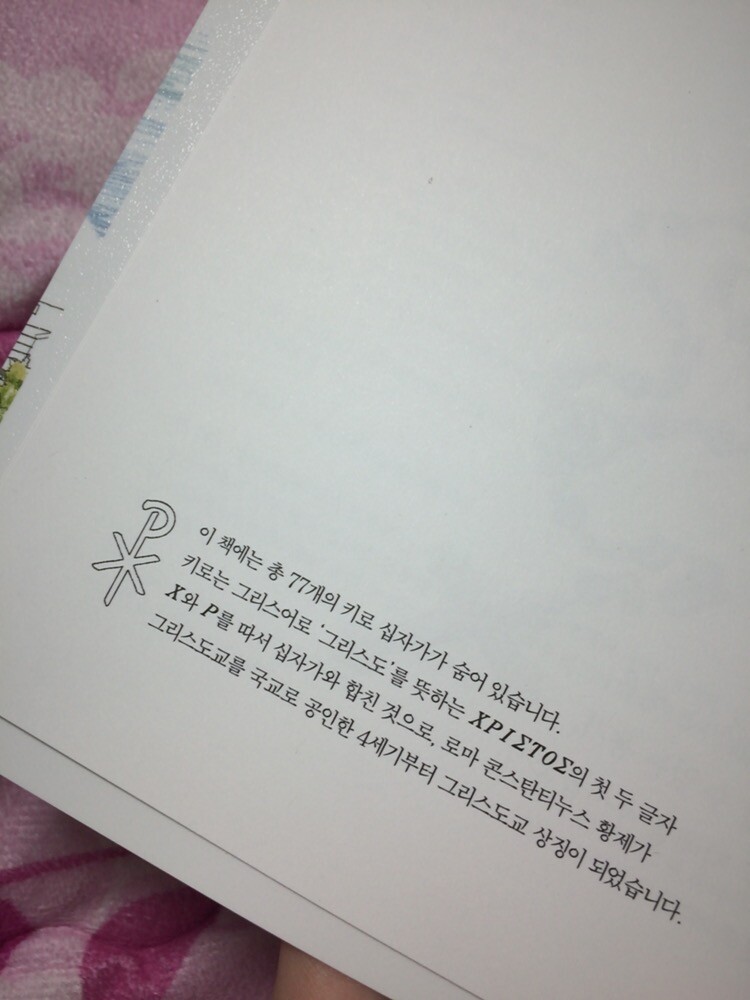 이 책에는 총 77개의 키로 십자가가 숨어 있습니다.
키로는 그리스어로 '그리스도'를 뜻하는 ΧΡΙΣΤΟΣ의 첫 두 글자
Χ와 Ρ를 따서 십자가와 합친 것으로, 로마 콘스탄티누스 황제가
그리스도교를 국교로 공인한 4세기부터 그리스도교 상징이 되었습니다.